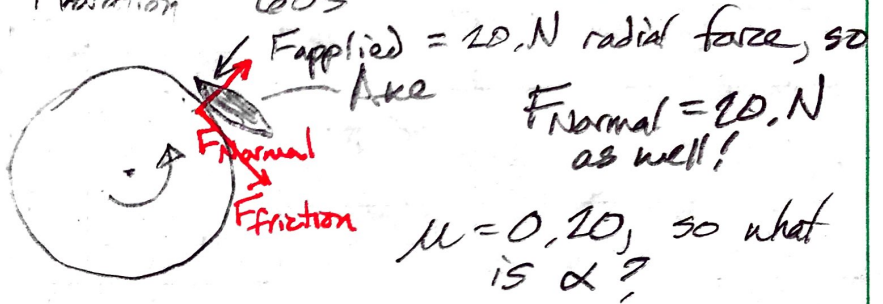 Fapplied = 20.N radial force, so
Axe
FNormal = 20.N
as well!
FNormal
Ffriction
μ = 0.20, so what
is α?